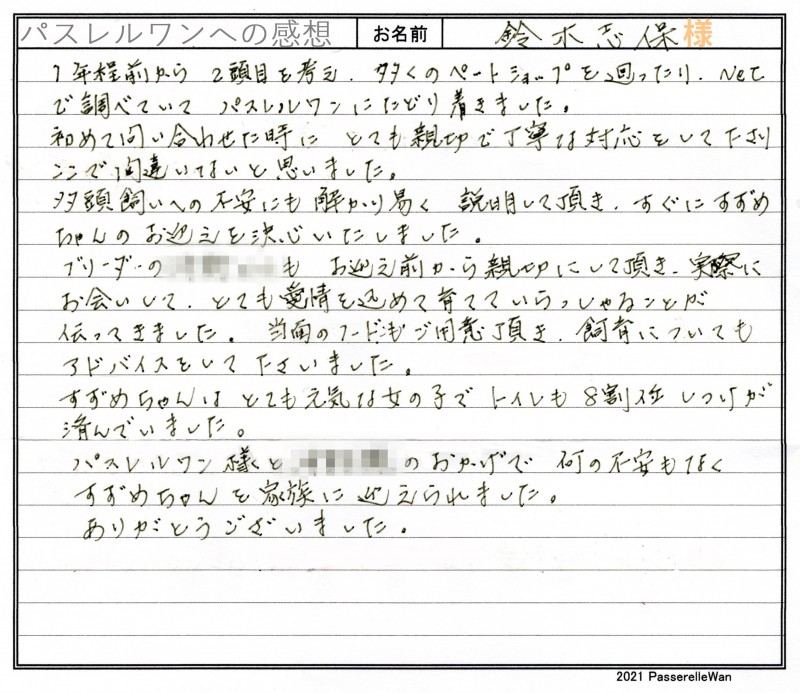 パスレルワンへの感想 お名前 鈴木志保 様
1年程前から 2頭目を考え、多くのペートショップを廻ったり、Net
で調べていて パスレルワンにたどり着きました。
初めて問い合わせた時に とても親切で丁寧な対応をして下さり
ここで間違いないと思いました。
多頭飼いへの不安にも解かり易く 説明して頂き、すぐにすずめ
ちゃんのお迎えを決じいたしました。
ブリーダーの も お迎え前から親切にして頂き、実際に
お会いして、とても愛情を込めて育てていらっしゃることが
伝ってきました。当面のフードもご用意頂き、飼育についても
アドバイスをして下さいました。
すずめちゃんは とても元気な女の子で トイレも 8割位 しつけが
済んでいました。
パスレルワン様と のおかげで 何の不安もなく
すずめちゃんを家族に迎えられました。
ありがとうございました。
2021 PasserelleWan